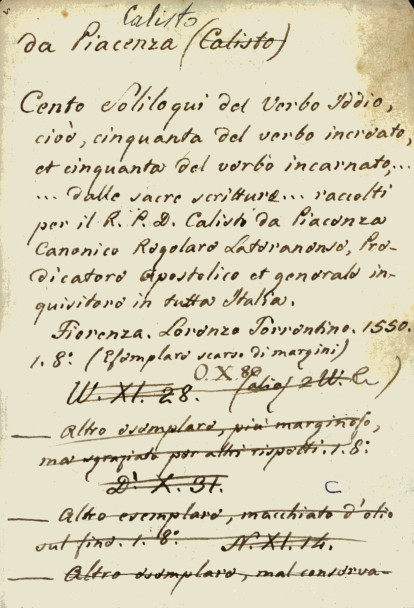 Calisto
da Piacenza (Calisto)
Cento Soliloqui del Verbo Iddio,
cioè, cinquanta del verbo increato,
et cinquanta del verbo incarnato,...
... dalle sacre scritture... raccolti
per il R. P. D. Calisto da Piacenza
Canonico Regolare Lateranense, Pre-
dicatore Apostolico et generale in-
quisitore in tutta Italia.
Fiorenza. Lorenzo Torrentino. 1550.
1. 8º (Esemplare scarso di margini)
O. X. 8
W. XI. 28.
— Altro esemplare, più marginoso,
ma sgrafiato per altri rispetti. 1. 8º
D. X. 31.
C
— Altro esemplare, macchiato d'olio
sul fine. 1. 8º N. XI. 14.
— Altro esemplare, mal conserva-